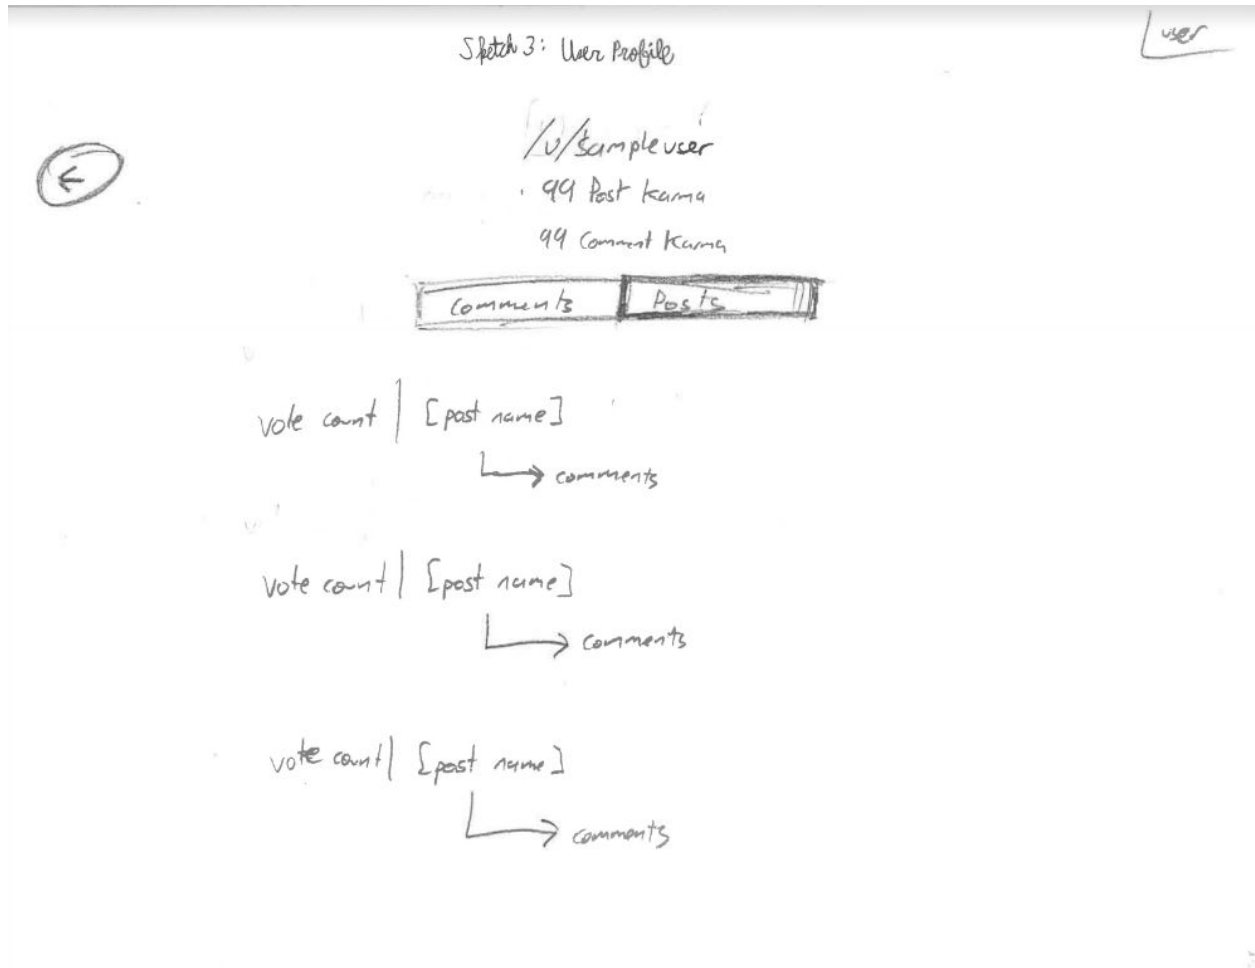 Sketch 3: User Profile
user
/u/sampleuser
99 Post Karma
99 Comment Karma
Comments Posts
vote count | [post name]
comments
vote count | [post name]
comments
vote count | [post name]
comments